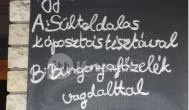 A: Sült oldalas
káposztás tésztával
B: Burgonyafőzelék
vagdalttal